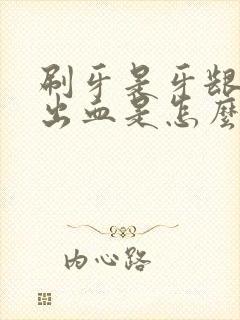 刷牙是牙龈
出血是怎麼
内心路